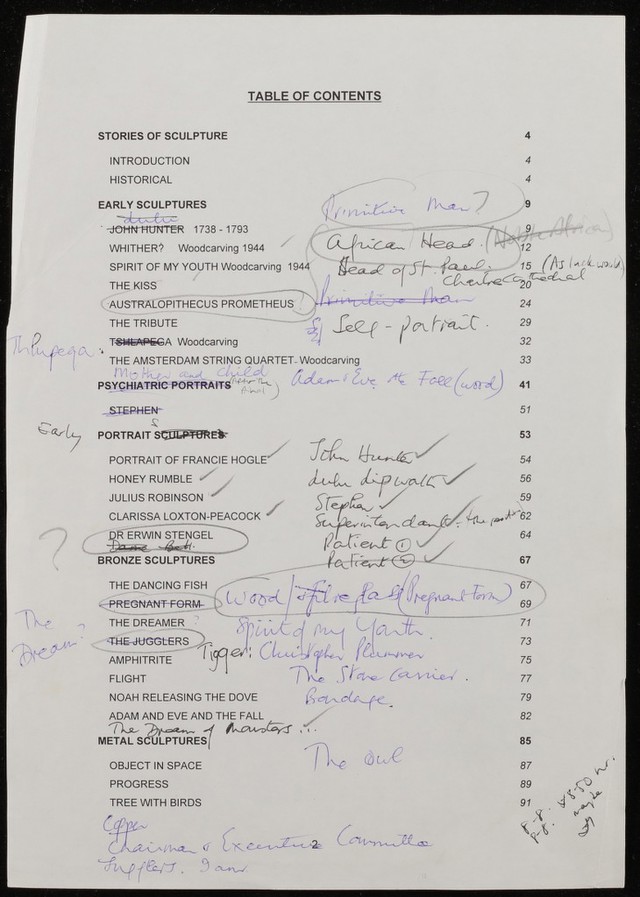 TABLE OF CONTENTS
STORIES OF SCULPTURE 4
INTRODUCTION 4
HISTORICAL 4
EARLY SCULPTURES Primitive Man? 9
dulu
JOHN HUNTER 1738 - 1793 9
African Head.
WHITHER? Woodcarving 1944 12
SPIRIT OF MY YOUTH Woodcarving 1944 Head of St. Paul. 15
Cathedral
THE KISS 20
AUSTRALOPITHECUS PROMETHEUS Primitive Man 24
THE TRIBUTE Self-portrait. 29
TSHLAPEGA Woodcarving 32
THE AMSTERDAM STRING QUARTET Woodcarving 33
Mother and Child
PSYCHIATRIC PORTRAITS Adam & Eve the Fall (wood) 41
STEPHEN 51
Early PORTRAIT SCULPTURES 53
PORTRAIT OF FRANCIE HOGLE John Hunter 54
HONEY RUMBLE dulu 56
JULIUS ROBINSON Stephen 59
CLARISSA LOXTON-PEACOCK 62
DR ERWIN STENGEL Patient 1 64
?
Patient 2
BRONZE SCULPTURES 67
THE DANCING FISH 67
PREGNANT FORM Wood / (Pregnant Form) 69
THE DREAMER 71
The Dream?
Spirit of my Youth.
THE JUGGLERS 73
AMPHITRITE Tigger: Christopher Plummer 75
FLIGHT The Stone Carrier. 77
NOAH RELEASING THE DOVE Bondage. 79
ADAM AND EVE AND THE FALL 82
The Dream of Monsters ...
METAL SCULPTURES 85
OBJECT IN SPACE The Owl 87
PROGRESS 89
TREE WITH BIRDS 91
Copper
Chairman & Executive Committee
2
Jugglers.